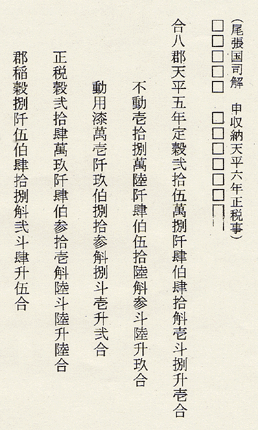 (尾張国司解 申収納天平六年正税事)
□□□□□ □□□□□□□
合八郡天平五年定穀弐拾伍萬捌阡肆伯肆拾斛壱斗捌升壱合
不動壱拾捌萬陸阡肆伯伍拾陸斛参斗陸升玖合
動用漆萬壱阡玖伯捌拾参斛捌斗壱升弐合
正税穀弐拾肆萬玖阡肆伯参拾壱斛陸斗陸升陸合
郡稲穀捌阡伍伯肆拾捌斛弐斗肆升伍合